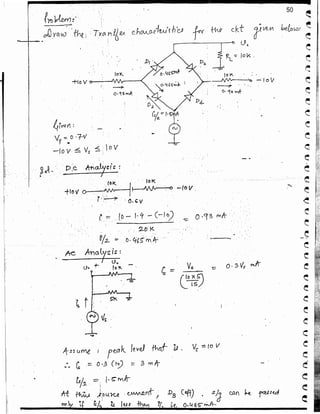 50
Problem:
Draw the Transfer characteristics for the ckt given below:
Vo
RL = 10k
D1
D2
0.465mA
10k
10k
+10V
-10V
0.93mA
0.93mA
D3
D4
Given:
Vγ = 0.7V
-10V ≤ Vs ≤ 10V
Sol. DC Analysis:
10k
10k
+10V
-10V
I
= 10 - 1.4 - (-10)
= 0.93 mA
20k
I/2 = 0.465 mA
AC Analysis:
Vo
10k
5k
Vs
= Vo
(10×5
15)
= 0.3 Vs mA
Assume, peak level that is. Vs = 10V
∴ = 0.3 (10) = 3 mA
= 1.5mA
At this source current, D3 (off). can be passed
only if is less than i.e., 0.465 mA.